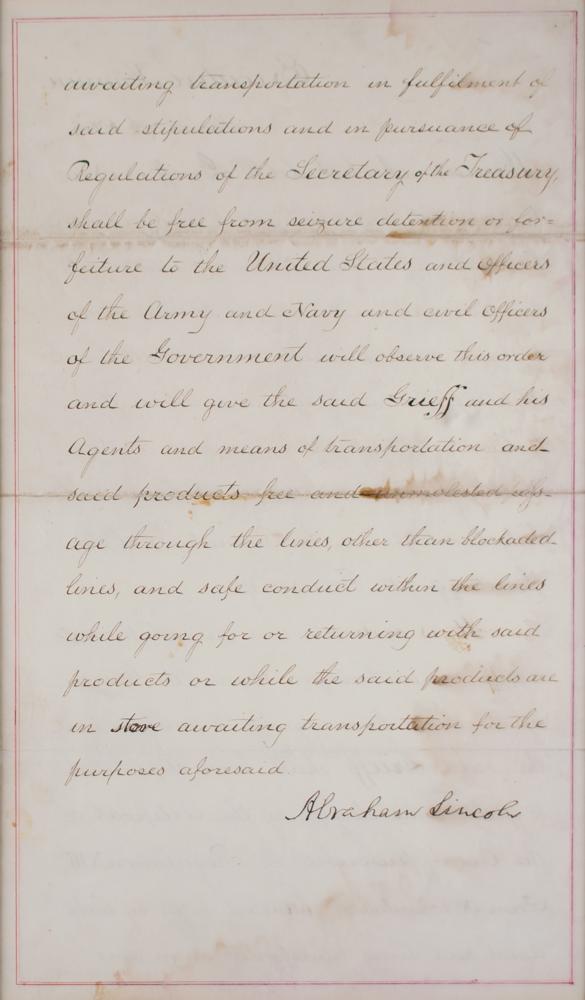 awaiting transportation in fulfilment of
said stipulations and in pursuance of
Regulations of the Secretary of the Treasury,
shall be free from seizure detention or for=
feiture to the United States and Officers
of the Army and Navy and civil Officers
of the Government will observe this order
and will give the said Grieff and his
Agents and means of transportation and
said products free and unmolested pass-
age through the lines, other than blockaded
lines, and safe conduct within the lines
while going for or returning with said
products or while the said products are
in store awaiting transportation for the
purposes aforesaid.
Abraham Lincoln